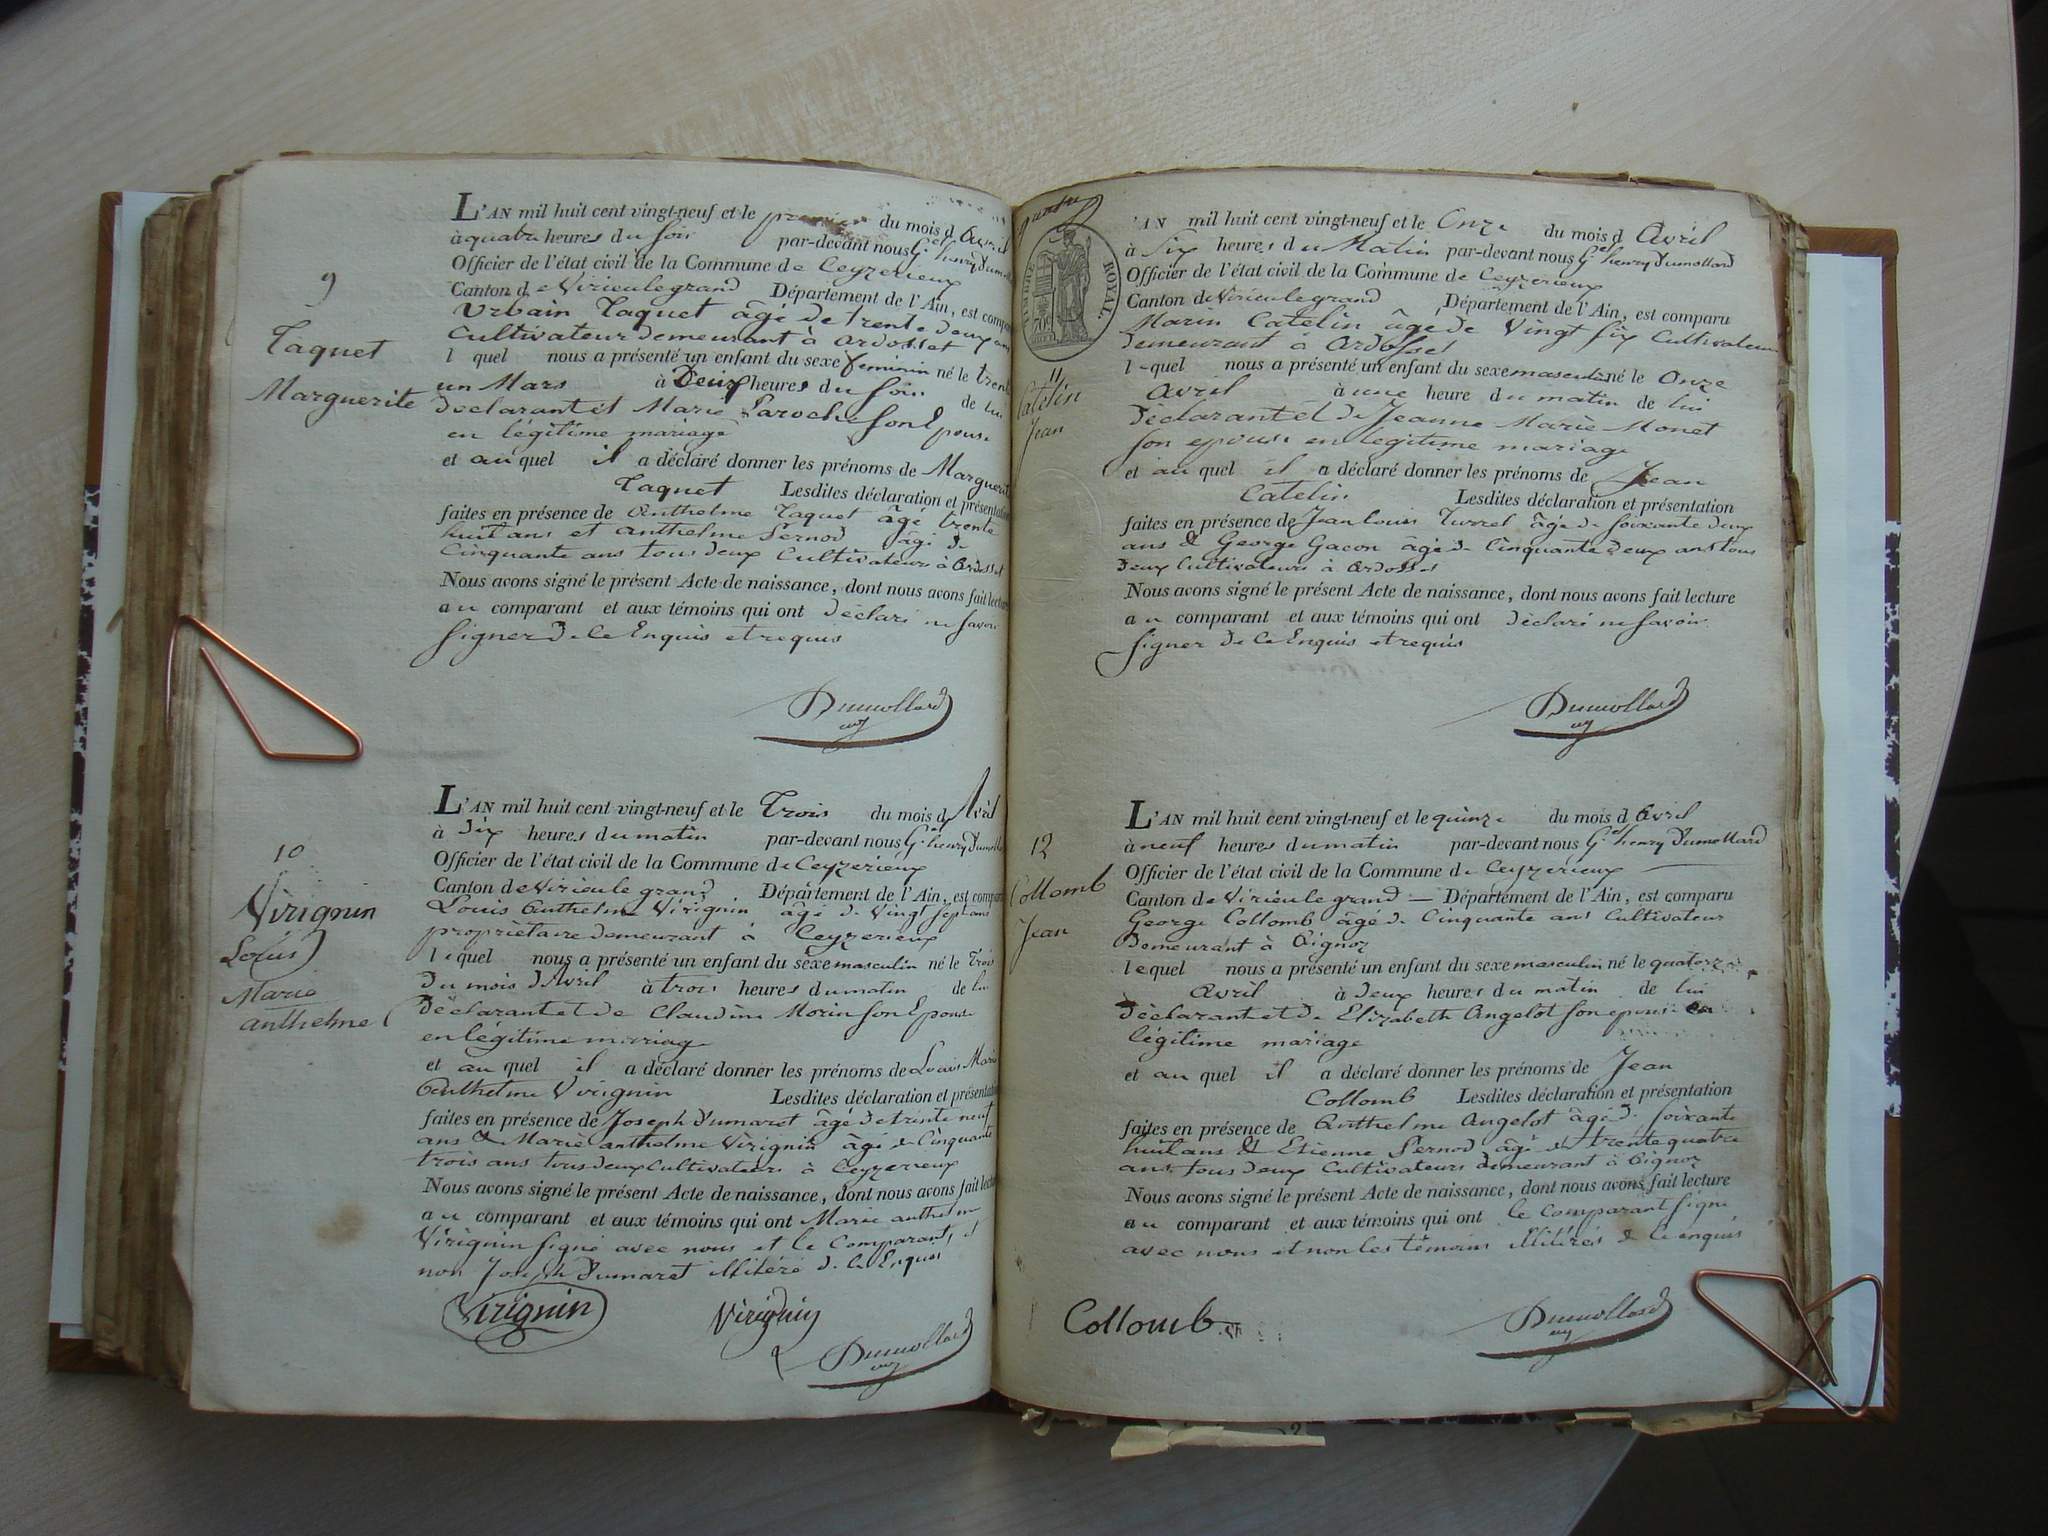 9
Taquet
Marguerite
L'AN mil huit cent vingt-neuf et le premier du mois d Avril
à quatre heures du soir par-devant nous G.el henry Dumollard
Officier de l'état civil de la Commune de Ceyzerieux
Canton de Virieulegrand Département de l'Ain, est comparu
Urbain Taquet âgé de trente deux ans
Cultivateur demeurant à Ardosset
l quel nous a présenté un enfant du sexe feminin né le trente
un Mars à Deux heures du soir de lui
déclarant et Marie Laroche son Epouse
en légitime mariage
et au quel il a déclaré donner les prénoms de Marguerite
Taquet Lesdites déclaration et présentation
faites en présence de Anthelme Taquet âgé trente
huit ans et anthelme Pernod âgé de
Cinquante ans tous deux Cultivateurs à Ardosset
Nous avons signé le présent Acte de naissance, dont nous avons fait lecture
au comparant et aux témoins qui ont déclaré ne savoir
signer de ce Enquis et requis
Dumollard
10
Virignin
Louis
Marie
anthelme
L'AN mil huit cent vingt-neuf et le Trois du mois d Avril
à Dix heures du matin par-devant nous G.el henry Dumollard
Officier de l'état civil de la Commune de Ceyzerieux
Canton de Virieule grand Département de l'Ain, est comparu
Louis Anthelme Virignin âgé de Vingt sept ans
propriètaire demeurant à Ceyzerieux
lequel nous a présenté un enfant du sexe masculin né le Trois
du mois d'Avril à trois heures du matin de lui
déclarant et de Claudine Morin son Epouse
en légitime mariage
et au quel il a déclaré donner les prénoms de Louis Marie
Anthelme Virignin Lesdites déclaration et présentation
faites en présence de Joseph Dumaret âgé de trente neuf
ans & Marie anthelme Virignin âgé de Cinquante
trois ans tous deux Cultivateurs à Ceyzerieux
Nous avons signé le présent Acte de naissance, dont nous avons fait lecture
au comparant et aux témoins qui ont Marie anthelme
Virignin signé avec nous et le Comparant, et
non Joseph Dumaret illitéré de ce Enquis
Virignin Virignin
Dumollard
TIMBRE ROYAL.
11
Catelin
Jean
'AN mil huit cent vingt-neuf et le Onze du mois d Avril
à Six heures du Matin par-devant nous G.el henry Dumollard
Officier de l'état civil de la Commune de Ceyzerieux
Canton de Virieulegrand Département de l'Ain, est comparu
Marin Catelin âgé de Vingt six Cultivateur
demeurant à Ardosset
lequel nous a présenté un enfant du sexe masculin né le Onze
Avril à une heure du matin de lui
déclarant et de Jeanne Marie Monet
son epouse en legitime mariage
et au quel il a déclaré donner les prénoms de Jean
Catelin Lesdites déclaration et présentation
faites en présence de Jean louis Turrel âgé de soixante deux
ans & George Gacon âgé de Cinquante deux ans tous
deux Cultivateurs à Ardosset
Nous avons signé le présent Acte de naissance, dont nous avons fait lecture
au comparant et aux témoins qui ont déclaré ne savoir
signer de ce Enquis et requis
Dumollard
12
Collomb
Jean
L'AN mil huit cent vingt-neuf et le quinze du mois d Avril
à neuf heures du matin par-devant nous G.el henry Dumollard
Officier de l'état civil de la Commune de Ceyzérieux
Canton de Virieulegrand Département de l'Ain, est comparu
George Collomb âgé de Cinquante ans Cultivateur
Demeurant à Aignoz
lequel nous a présenté un enfant du sexe masculin né le quatorze
Avril à deux heures du matin de lui
déclarant et de Elizabeth Angelot son epouse en
légitime mariage
et au quel il a déclaré donner les prénoms de Jean
Collomb Lesdites déclaration et présentation
faites en présence de Anthelme Angelot âgé de soixante
huit ans & Etienne Pernod âgé de trente quatre
ans tous deux Cultivateurs demeurant à Aignoz
Nous avons signé le présent Acte de naissance, dont nous avons fait lecture
au comparant et aux témoins qui ont le Comparant signé
avec nous et non les témoins illitérés de ce enquis
Collomb Dumollard